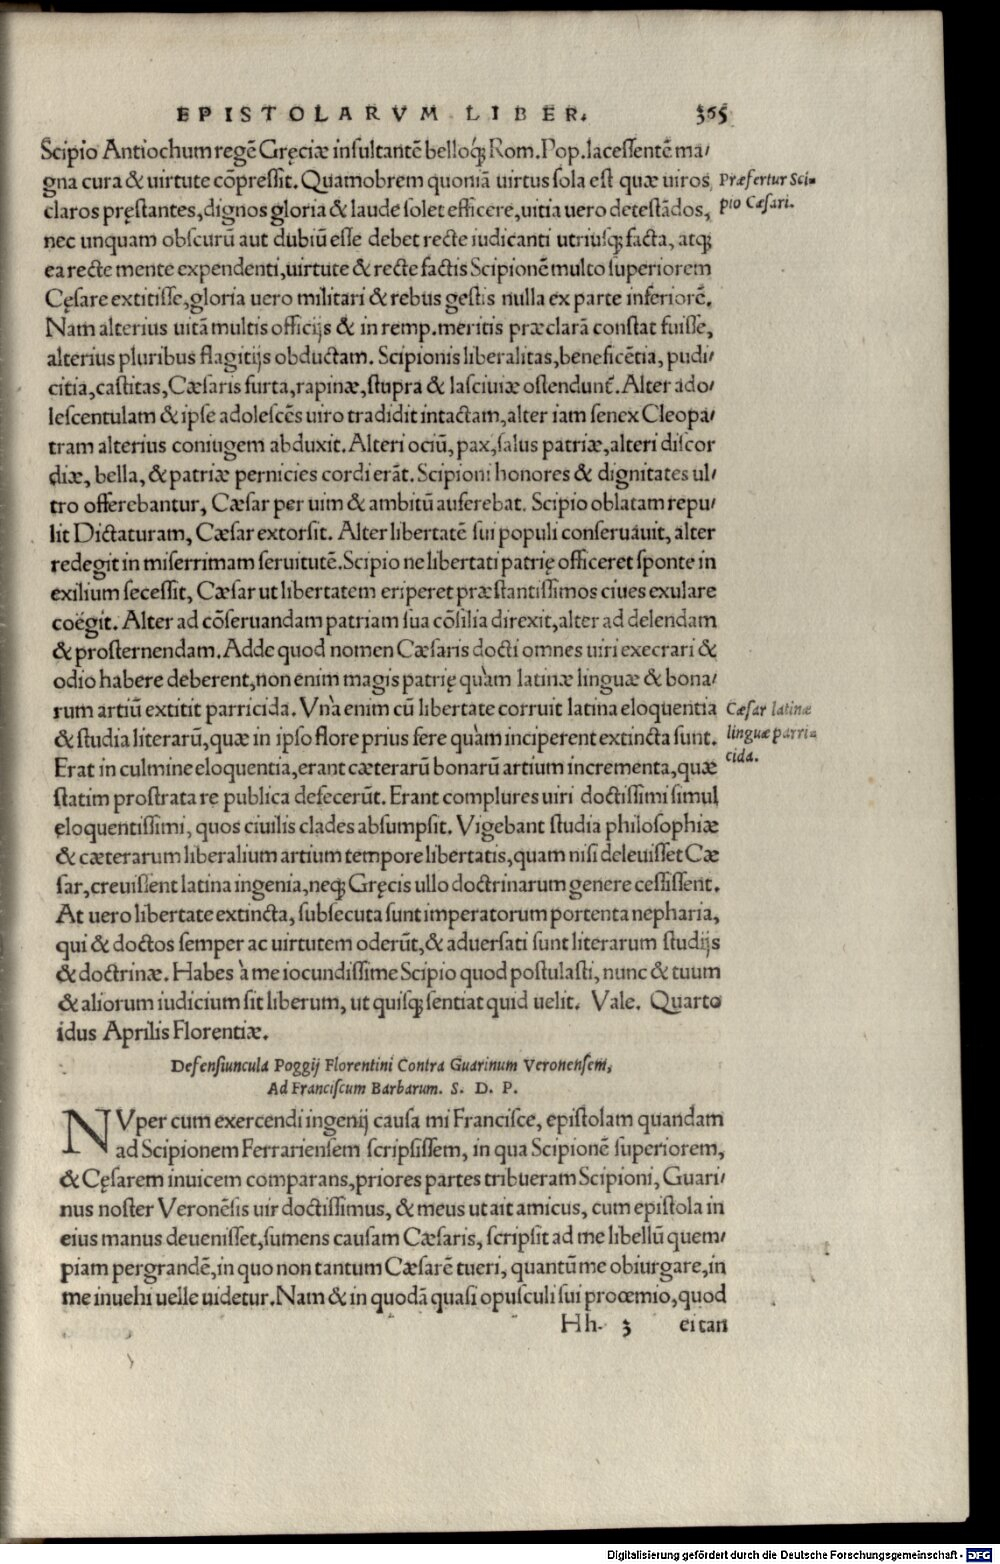 EPISTOLARVM LIBER. 365
Scipio Antiochum regē Gręciæ insultantē belloq́; Rom. Pop. lacessentē ma/
gna cura & uirtute cōpressit. Quamobrem quoniā uirtus sola est quæ uiros
Præfertur Sci-
claros pręstantes, dignos gloria & laude solet efficere, uitia uero detestādos,
pio Cæsari.
nec unquam obscurū aut dubiū esse debet recte iudicanti utriusq; facta, atq;
ea recte mente expendenti, uirtute & recte factis Scipionē multo superiorem
Cęsare extitisse, gloria uero militari & rebus gestis nulla ex parte inferiorē.
Nam alterius uitā multis officijs & in remp. meritis præclarā constat fuisse,
alterius pluribus flagitijs obductam. Scipionis liberalitas, beneficētia, pudi/
citia, castitas, Cæsaris furta, rapinæ, stupra & lasciuiæ ostendunt̄. Alter ado/
lescentulam & ipse adolescēs uiro tradidit intactam, alter iam senex Cleopa/
tram alterius coniugem abduxit. Alteri ociū, pax, salus patriæ, alteri discor
diæ, bella, & patriæ pernicies cordi erāt. Scipioni honores & dignitates ul/
tro offerebantur, Cæsar per uim & ambitū auferebat. Scipio oblatam repu/
lit Dictaturam, Cæsar extorsit. Alter libertatē sui populi conseruauit, alter
redegit in miserrimam seruitutē. Scipio ne libertati patrię officeret sponte in
exilium secessit, Cæsar ut libertatem eriperet præstantissimos ciues exulare
coëgit. Alter ad cōseruandam patriam sua cōsilia direxit, alter ad delendam
& prosternendam. Adde quod nomen Cæsaris docti omnes uiri execrari &
odio habere deberent, non enim magis patrię quàm latinæ linguæ & bona/
rum artiū extitit parricida. Vnà enim cū libertate corruit latina eloquentia
Cæsar latinæ
& studia literarū, quæ in ipso flore prius fere quàm inciperent extincta sunt.
linguæ parri-
Erat in culmine eloquentia, erant cæterarū bonarū artium incrementa, quæ
cida.
statim prostrata re publica defecerūt. Erant complures uiri doctissimi simul
eloquentissimi, quos ciuilis clades absumpsit. Vigebant studia philosophiæ
& cæterarum liberalium artium tempore libertatis, quam nisi deleuisset Cæ
sar, creuissent latina ingenia, neq; Gręcis ullo doctrinarum genere cessissent.
At uero libertate extincta, subsecuta sunt imperatorum portenta nepharia,
qui & doctos semper ac uirtutem oderūt, & aduersati sunt literarum studijs
& doctrinæ. Habes à me iocundissime Scipio quod postulasti, nunc & tuum
& aliorum iudicium sit liberum, ut quisq; sentiat quid uelit. Vale. Quarto
idus Aprilis Florentiæ.
Defensiuncula Poggij Florentini Contra Guarinum Veronensem,
Ad Franciscum Barbarum. S. D. P.
NVper cum exercendi ingenij causa mi Francisce, epistolam quandam
ad Scipionem Ferrariensem scripsissem, in qua Scipionē superiorem,
& Cęsarem inuicem comparans, priores partes tribueram Scipioni, Guari/
nus noster Veronēsis uir doctissimus, & meus ut ait amicus, cum epistola in
eius manus deuenisset, sumens causam Cæsaris, scripsit ad me libellū quem/
piam pergrandē, in quo non tantum Cæsarē tueri, quantū me obiurgare, in
me inuehi uelle uidetur. Nam & in quodā quasi opusculi sui proœmio, quod
Hh. 3 ei tan
Digitalisierung gefördert durch die Deutsche Forschungsgemeinschaft - DFG